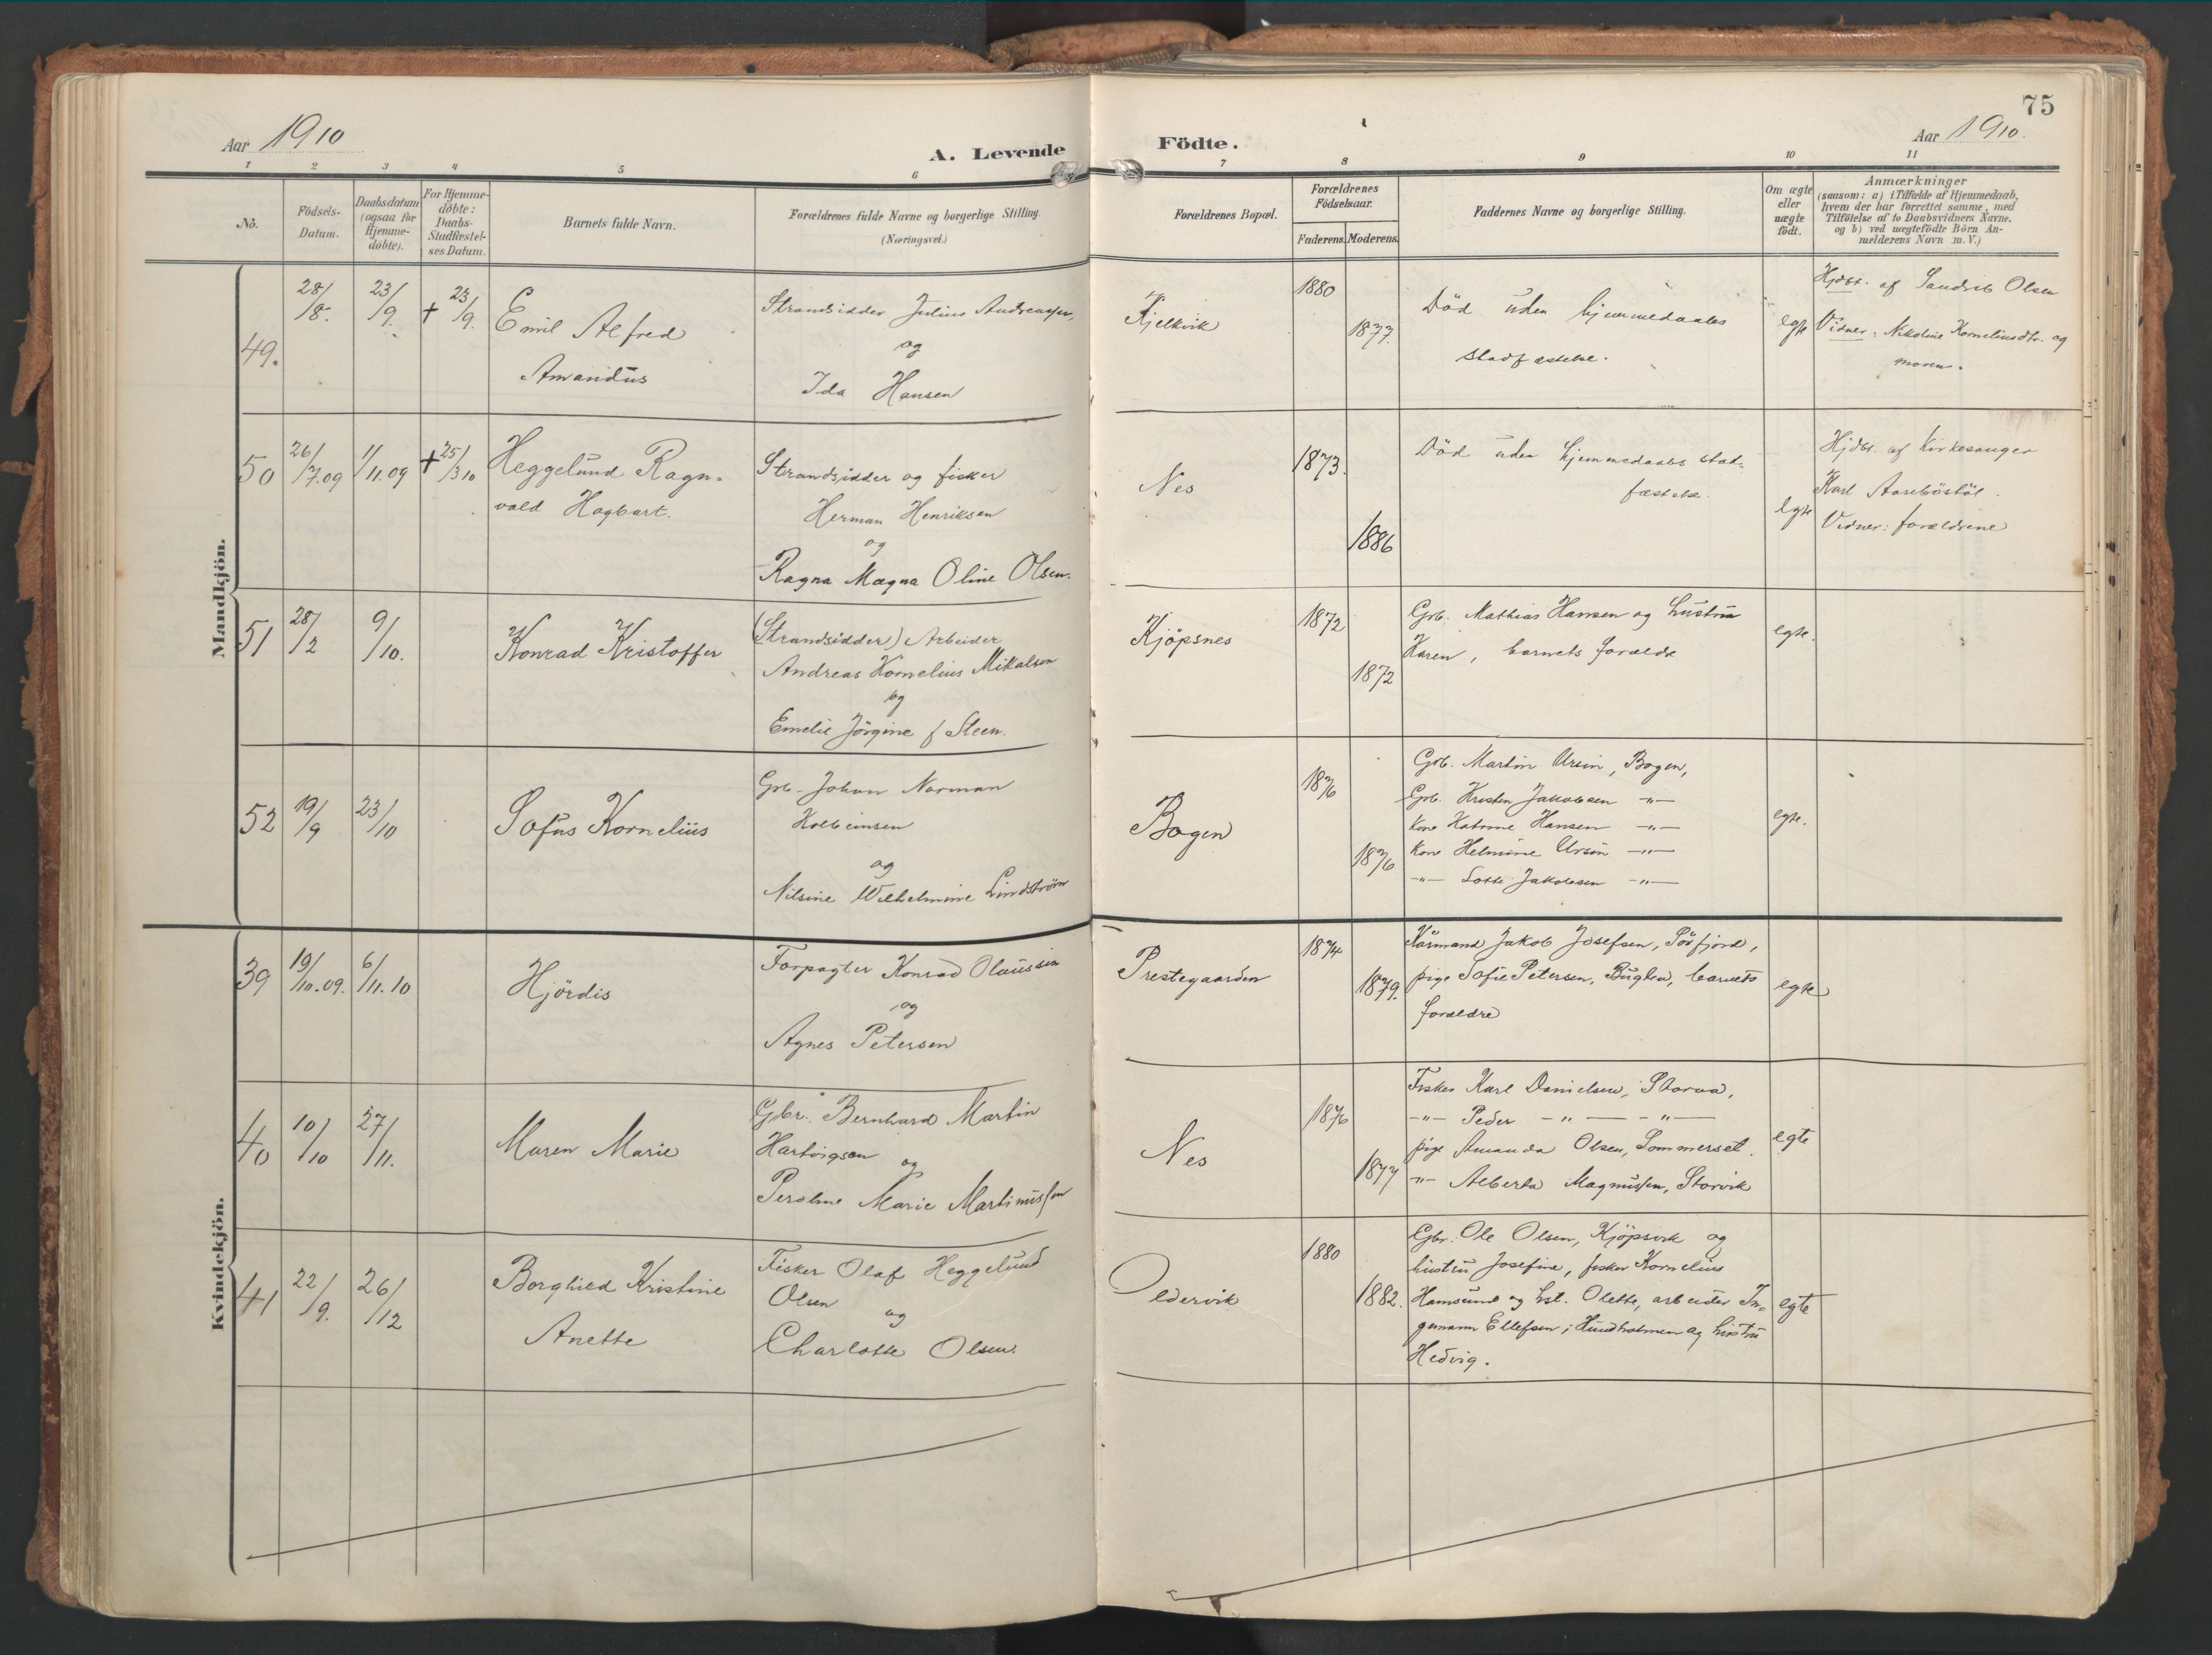 75
Aar 1910
A. Levende Födte.
Aar 1910.
1 2 3 4 5 6 7 8 9 10 11
No.
Födsels-
Datum.
Daabsdatum
(ogsaa for
Hjemme-
döbte).
For Hjemme-
döbte:
Daabs-
Stadfæstel-
ses Datum.
Barnets fulde Navn.
Forældrenes fulde Navne og borgerlige Stilling.
(Næringsvei.)
Forældrenes Bopæl.
Forældrenes
Födselsaar.
Faderens. Moderens.
Faddernes Navne og borgerlige Stilling.
Om ægte
eller
uægte
födt.
Anmærkninger
(saasom: a) i Tilfælde af Hjemmedaab,
hvem der har forrettet samme, med
Tilföielse af to Daabsvidners Navne,
og b) ved uægtefödte Börn An-
melderens Navn m. V.)
Mandkjön.
49.
28/8.
23/9.
+ 23/9.
Emil Alfred
Amandus
Strandsidder Julius Andreassen,
og
Ida Hansen
Kjelkvik
1880
1877.
Död uden hjemmedaabs
stadfæstelse.
egte
Hjdbt. af Sandrik Olsen
Vidner: Nikoline Korneliusdtr. og
moren.
50
26/7.09
1/11.09
+ 25/3 10
Heggelund Ragn-
vald Hagbart.
Strandsidder og fisker
Herman Henriksen
og
Ragna Magna Oline Olsen.
Nes
1873.
1886
Död uden hjemmedaabs stad-
fæstelse.
egte
Hjdbt. af kirkesanger
Karl Aaseböstöl.
Vidner: forældrene
51
28/2
9/10.
Konrad Kristoffer
(Strandsidder) Arbeider
Andreas Kornelius Mikalsen
og
Emelie Jörgine f Steen.
Kjöpsnes
1872
1872
Grb. Mathias Hansen og hustru
Karen, barnets forældre
egte.
52
19/9
23/10
Sofus Kornelius
Grb. Johan Norman
Kolbeinsen
og
Nilsine Wilhelmine Lindström
Bogen
1876
1876
Grb. Martin Ursin, Bogen,
Grb. Kristen Jakobsen -"-
Kone Katrine Hansen -"-
Kone Helmine Ursin -"-
-"- Lotte Jakobsen -"-
egte.
Kvindekjön.
39
19/10.09.
6/11.10
Hjördis
Forpagter Konrad Olaussen
og
Agnes Petersen
Prestegaarden
1874
1879.
Kårmand Jakob Josefsen, Sörfjord,
pige Sofie Petersen, Buglen, barnets
forældre
egte
40
10/10
27/11.
Maren Marie
Gbr. Bernhard Martin
Hartvigsen og
Peroline Marie Martinussen
Nes
1876
1877
Fisker Karl Danielsen, Storaa,
-"- Peder -"- -"-
pige Amanda Olsen, Sommerset.
-"- Alberta Magnussen, Storvik
egte
41
22/9.
26/12
Borghild Kristine
Anette
Fisker Olaf Heggelund
Olsen og
Charlotte Olsen.
Oldervik
1880
1882.
Gbr. Ole Olsen, Kjöpsvik og
hustru Josefine, fisker Kornelius
Hamsund og hst. Olette, arbeider In-
gemann Ellefsen, Hundholmen og hustru
Hedvig.
egte